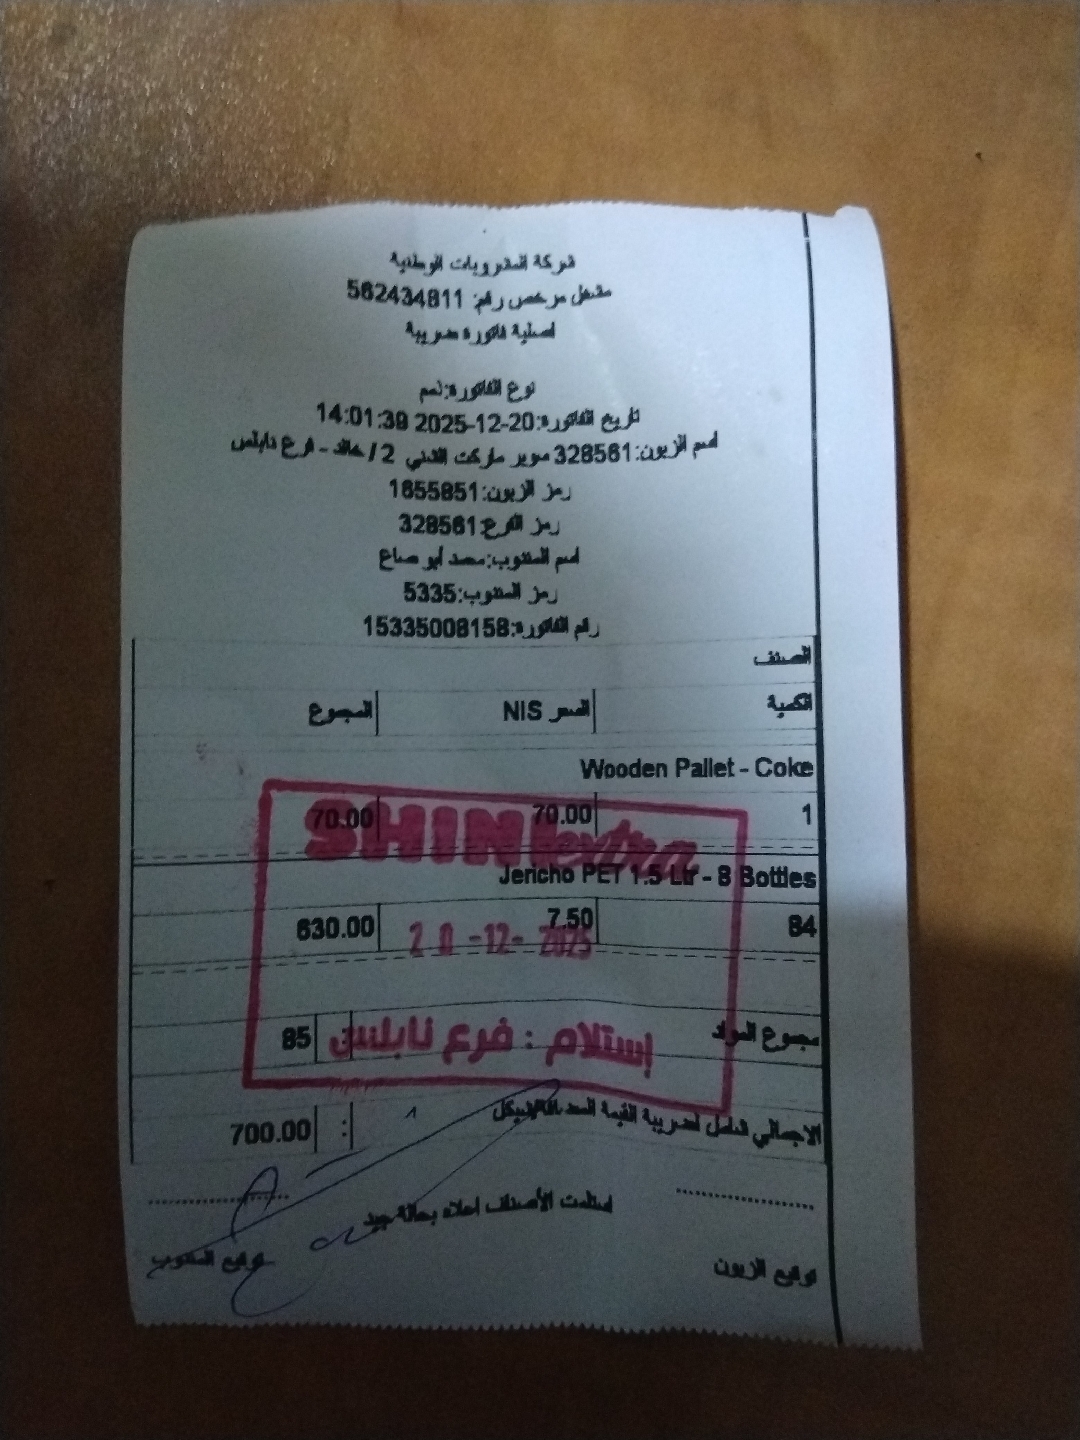 شركة المشروبات الوطنية
مشغل مرخص رقم: 562434811
اصلية فاتورة ضريبة
نوع الفاتورة:ذمم
تاريخ الفاتورة:20-12-2025 14:01:39
اسم الزبون:328561 سوبر ماركت الشني 2 / خالد - فرع نابلس
رمز الزبون:1655851
رمز الفرع:328561
اسم المندوب:محمد أبو صاع
رمز المندوب:5335
رقم الفاتورة:15335008158
الصنف
الكمية السعر NIS المجموع
Wooden Pallet - Coke
1 70.00 70.00
SHINI extra
Jericho PET 1.5 Ltr - 8 Bottles
84 7.50 630.00
20 -12- 2025
مجموع المواد 85
إستلام : فرع نابلس
الاجمالي شامل لضريبة القيمة المضافة/شيكل : 700.00
استلمت الأصناف اعلاه بحالة جيد
توقيع الزبون توقيع المندوب